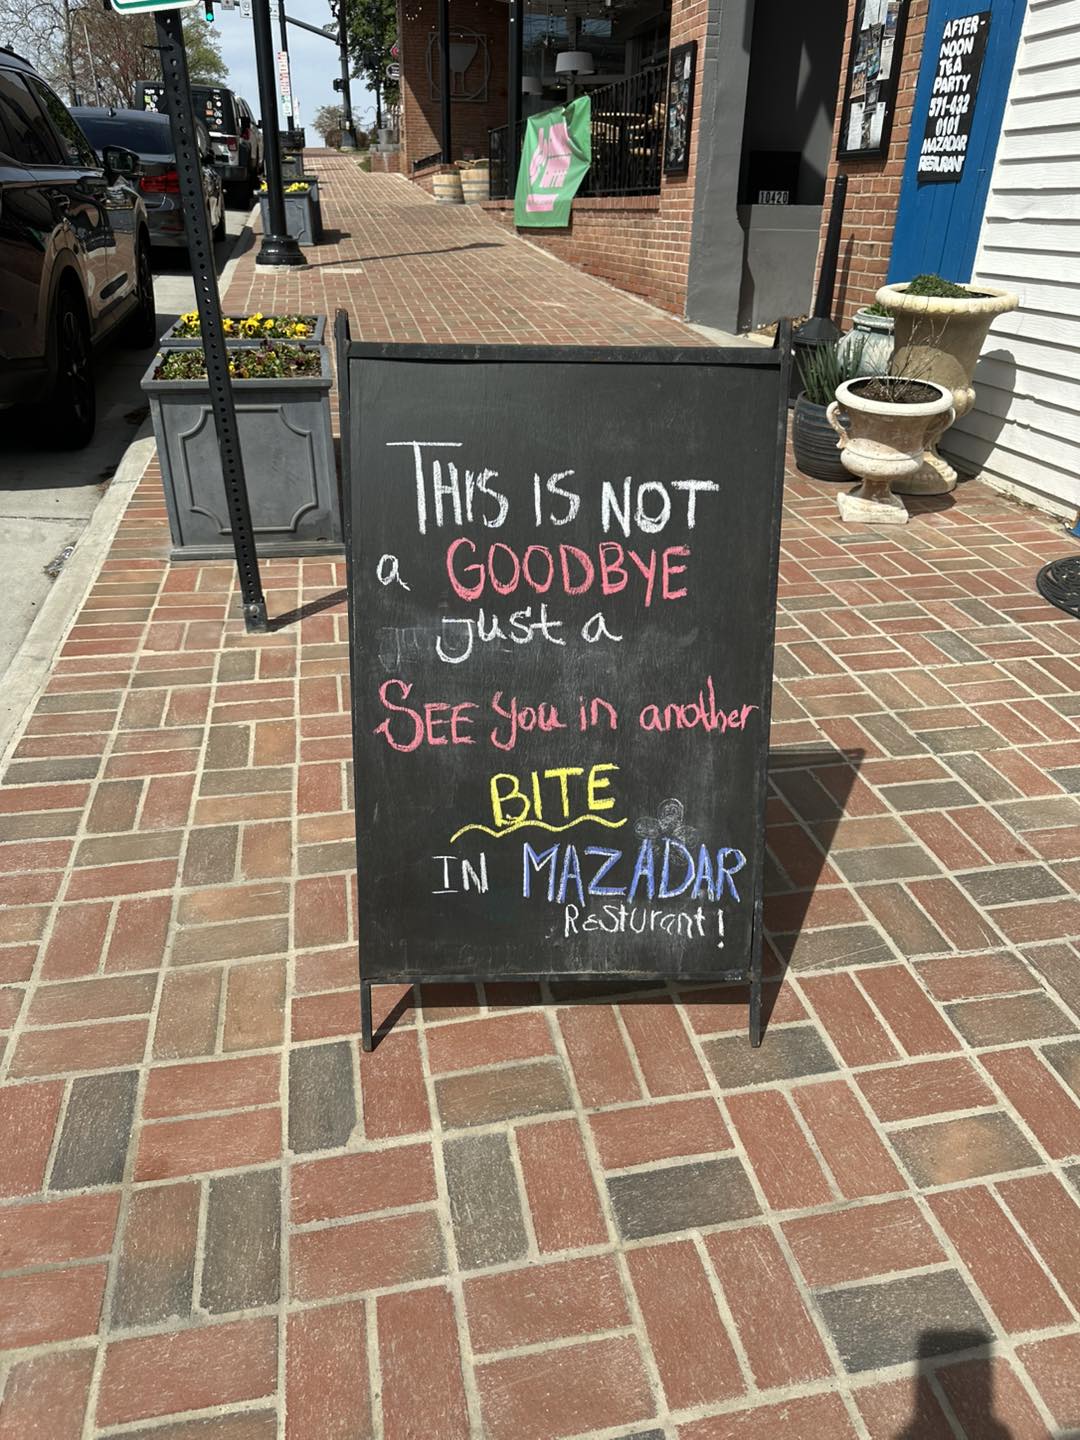 AFTER-
NOON
TEA
PARTY
571-432
0101
MAZADAR
RESTURANT
10420
THIS IS NOT
a GOODBYE
just a
SEE you in another
BITE
IN MAZADAR
ReSturant!